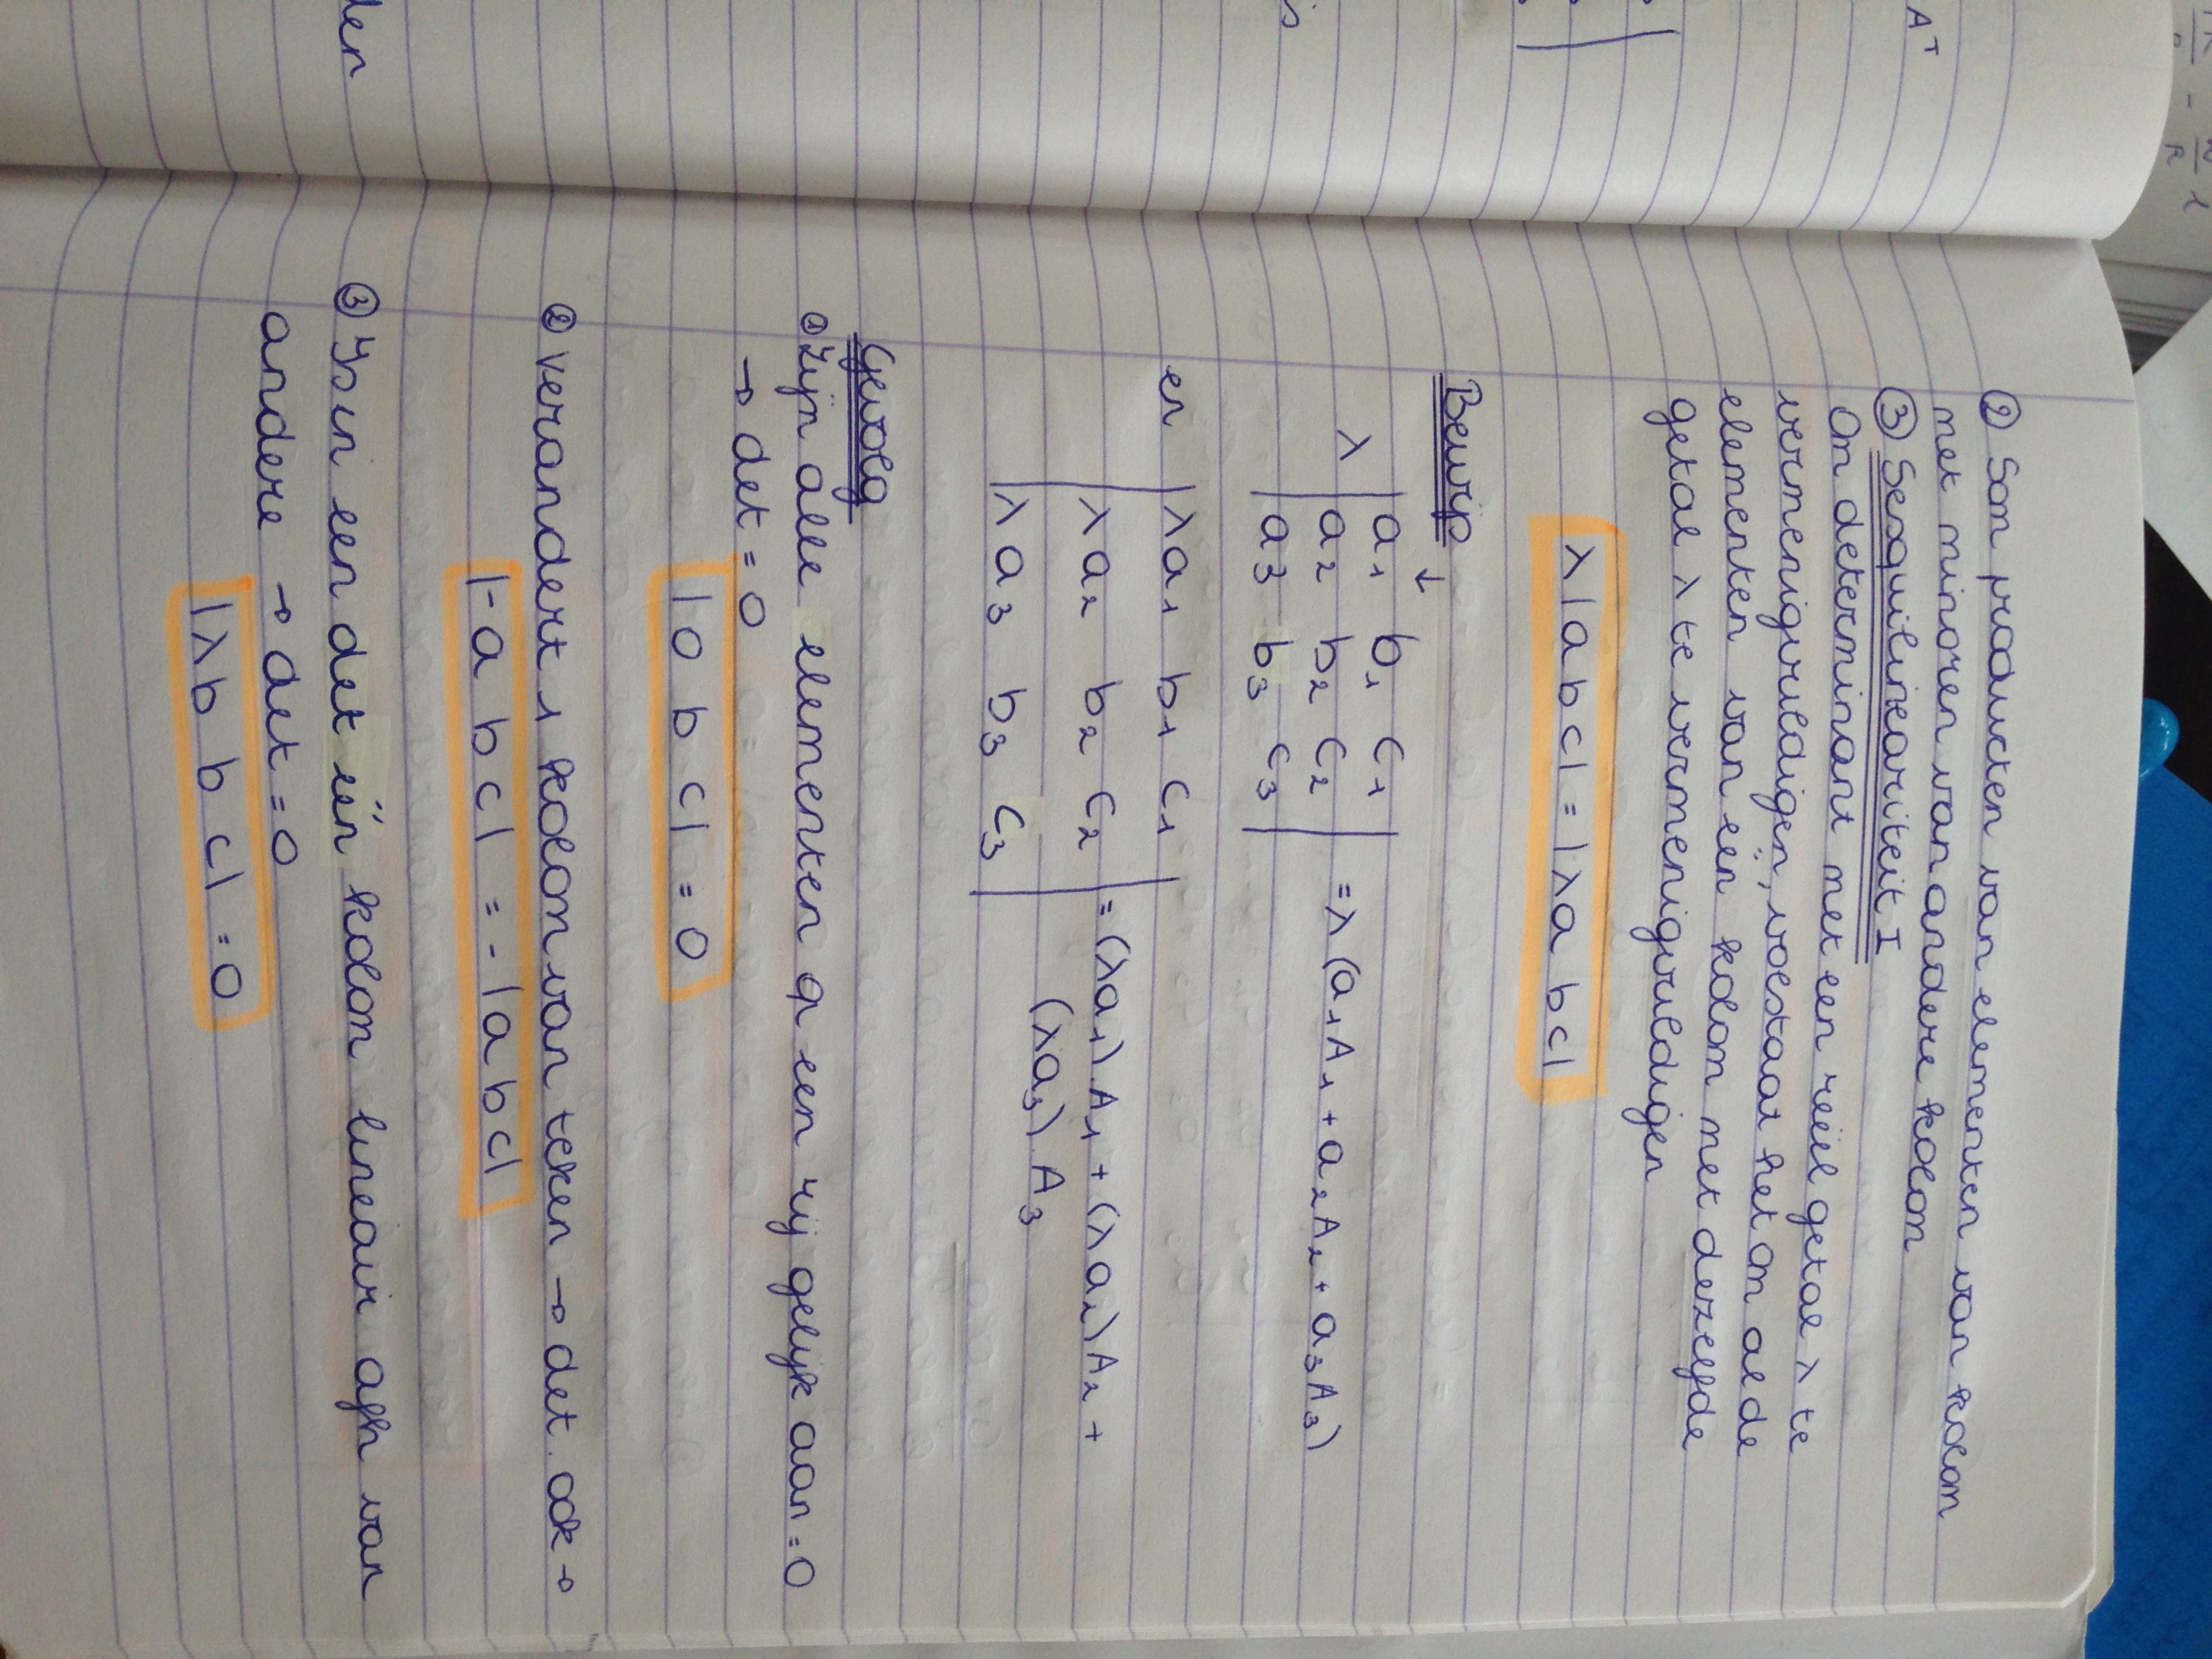 ② Som producten van elementen van kolom
met minoren van andere kolom
③ Sesquilineariteit I
Om determinant met een reëel getal λ te
vermenigvuldigen, volstaat het om al de
elementen van een kolom met dezelfde
getal λ te vermenigvuldigen
λ |a b c| = |λa b c|
Bewijs ↓
λ | a₁ b₁ c₁ |
| a₂ b₂ c₂ | = λ (a₁A₁ + a₂A₂ + a₃A₃)
| a₃ b₃ c₃ |
en | λa₁ b₁ c₁ |
| λa₂ b₂ c₂ | = (λa₁) A₁ + (λa₂) A₂ +
| λa₃ b₃ c₃ | (λa₃) A₃
Gevolg
① Zijn alle elementen q een rij gelijk aan = 0
→ det = 0
|0 b c| = 0
② verandert 1 kolom van teken → det. ook →
|-a b c| = - |a b c|
③ Is in een det één kolom lineair afh van
andere → det = 0
|λb b c| = 0
Aᵀ
is
den